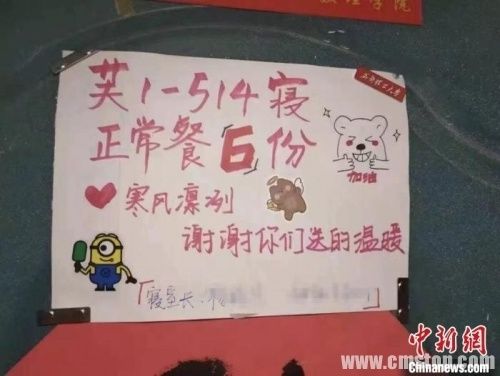 芙1-514寝
正常餐「6」份
加油
❤寒风凛冽
谢谢你们送的温暖
「寝室长:
」
中新网
www.cmstop.com
Chinanews.com